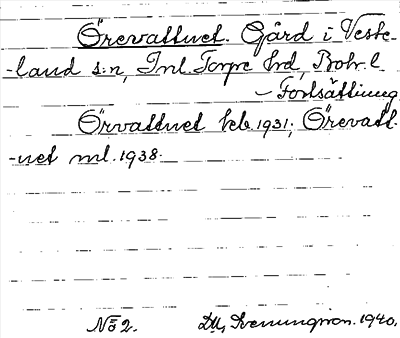 Örevattnet. Gård i Väste-
-land s:n, Inl. Torpe hrd, Boh. l.
— Fortsättning
Örvattnet kb 1931; Örevatt-
-net ml. 1938.
No 2. Svenungsson. 1940.